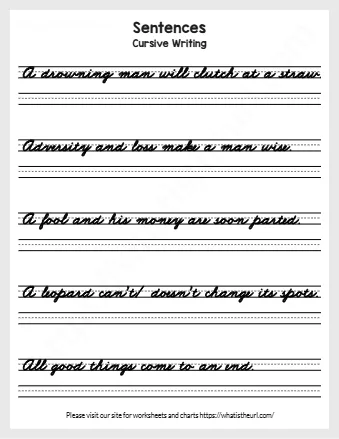 Sentences
Cursive Writing
A drowning man will clutch at a straw.
Adversity and loss make a man wise.
A fool and his money are soon parted.
A leopard can't/ doesn't change its spots.
All good things come to an end.
Please visit our site for worksheets and charts https://whatistheurl.com/